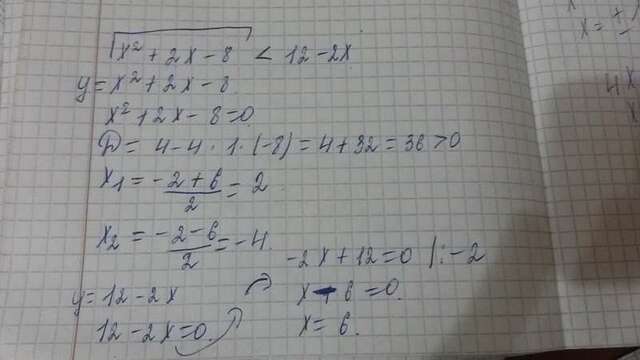 √(x²+2x-8) < 12-2x
y=x²+2x-8
x²+2x-8=0
D=4-4·1·(-8)=4+32=36>0
x₁=(-2+6)/2=2
x₂=(-2-6)/2=-4
y=12-2x
12-2x=0
-2x+12=0 |:-2
x-6=0
x=6